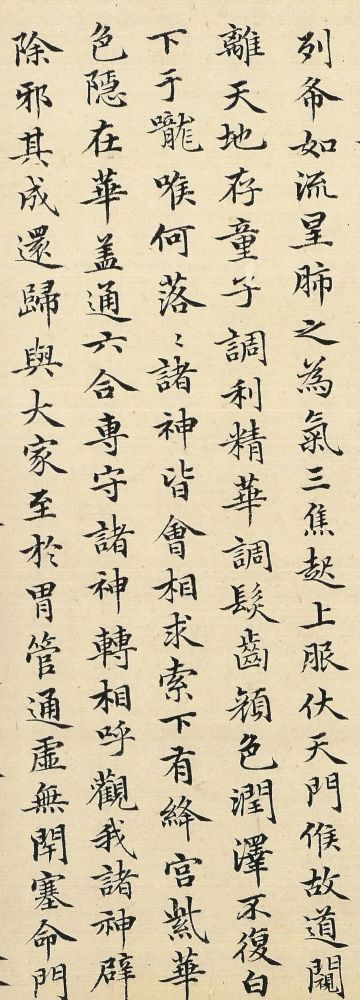 列布如流星肺之為氣三焦起上服伏天門候故道闚
離天地存童子調利精華調髮齒顏色潤澤不復白
下于嚨喉何落〻諸神皆會相求索下有絳宮紫華
色隱在華盖通六合專守諸神轉相呼觀我諸神辟
除邪其成還歸與大家至於胃管通虛無閉塞命門